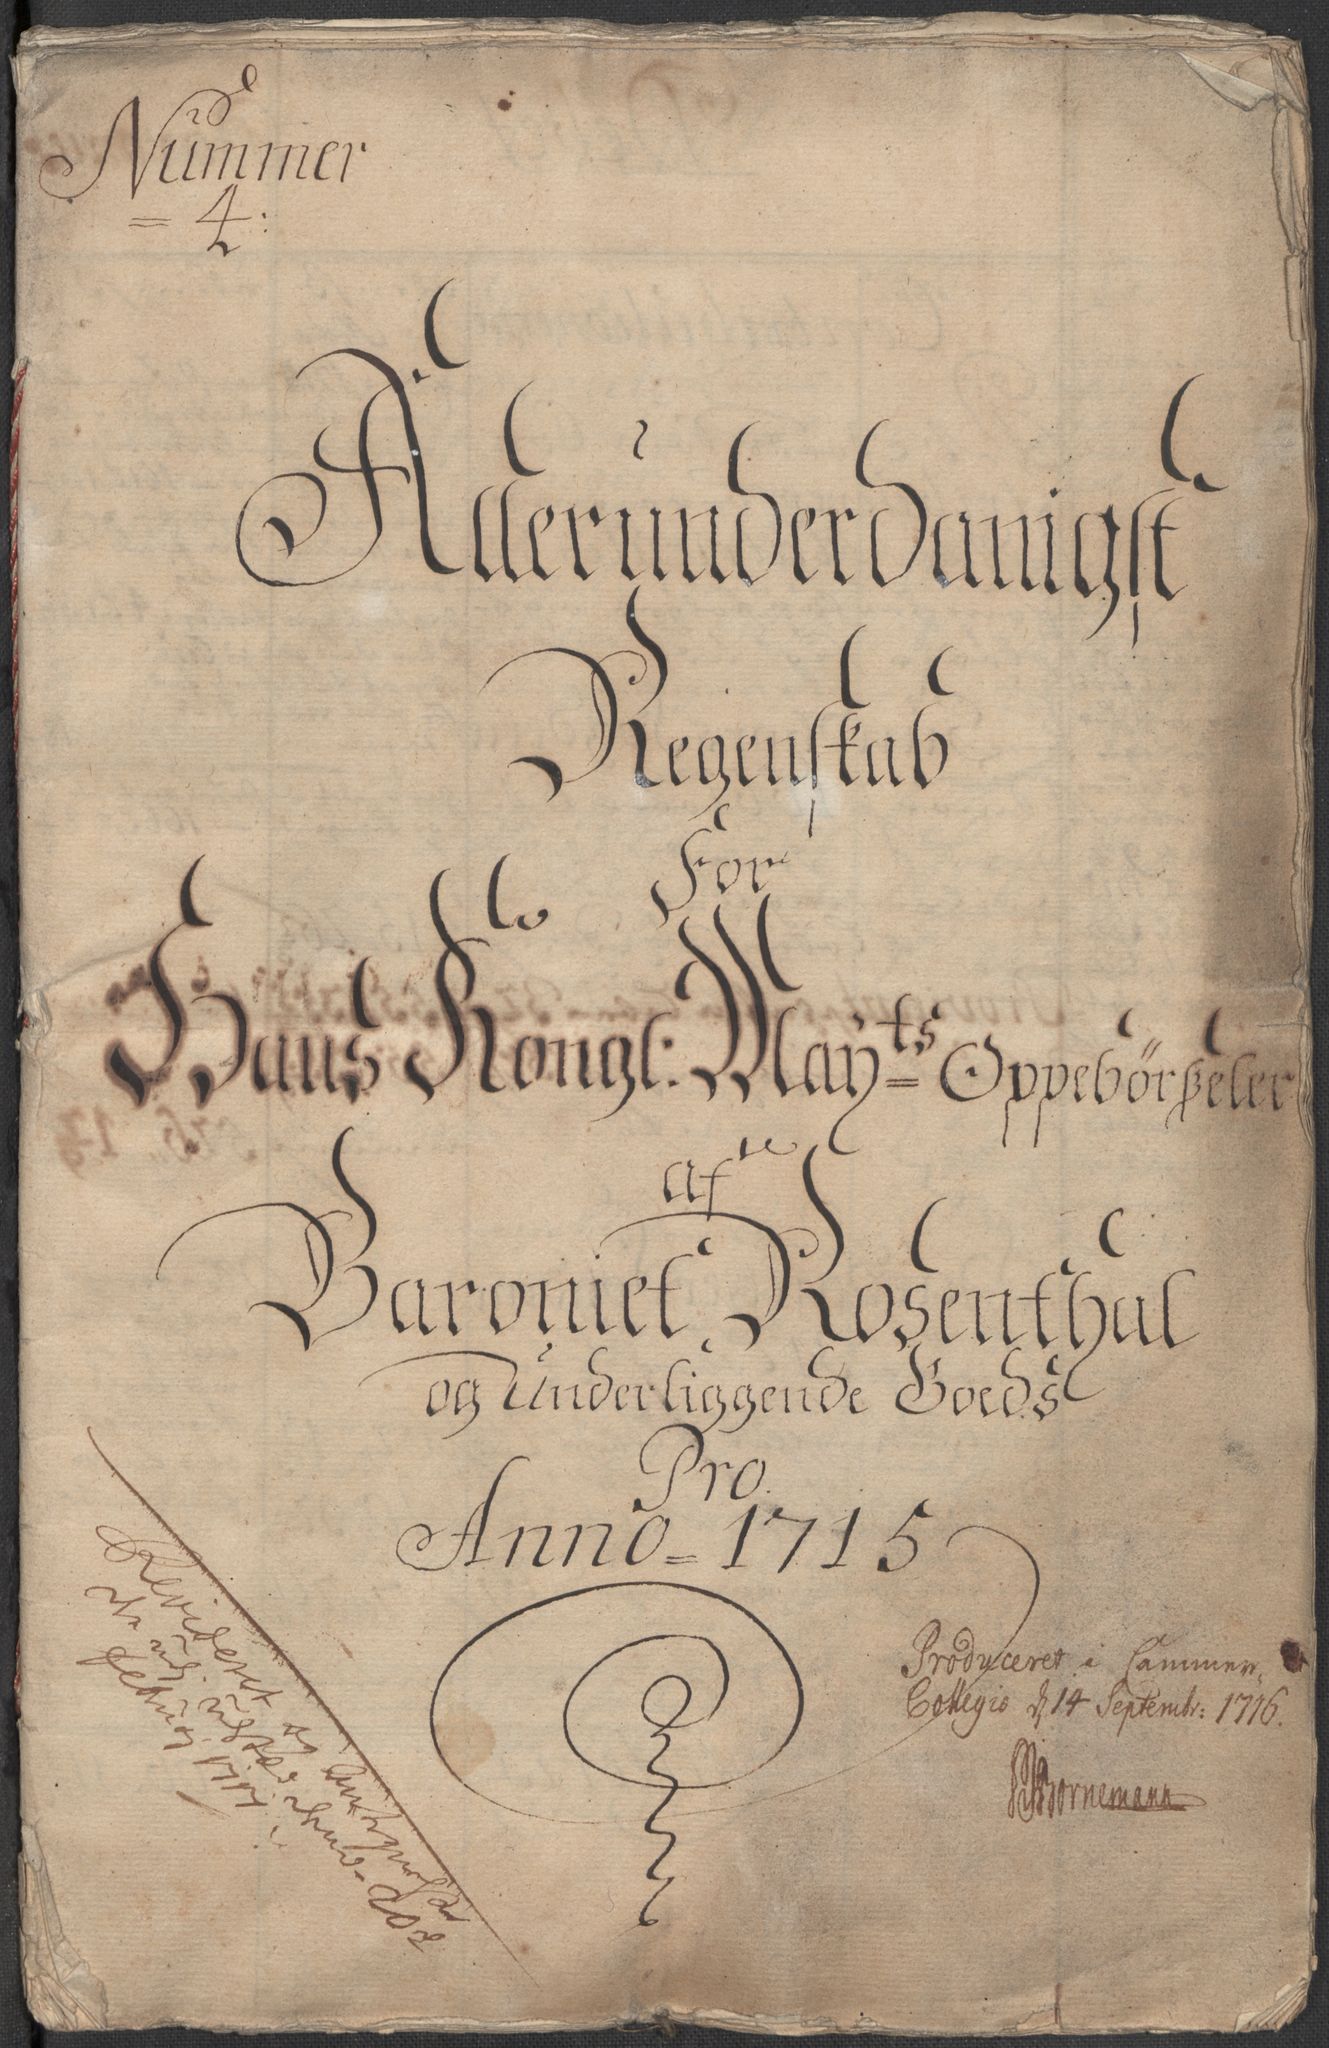 Nummer
= 4:
Allerunderdanigst
Regenskab
For
Hans Kongl: May^ts= Oppebörseler
af
Baroniet Rosenthal
og Underliggende Goeds
Pro
Anno = 1715
Produceret i Cammer=
Collegio d 14 Septembr: 1716.
Bornemann
Revideret og
1717